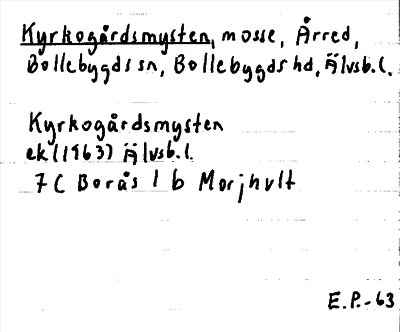 Kyrkogårdsmysten, mosse, Årred,
Bollebygds sn, Bollebygds hd, Älvsb.l.
Kyrkogårdsmysten
ek (1963) Älvsb.l.
7C Borås 1 b Morjhult
E.P.-63